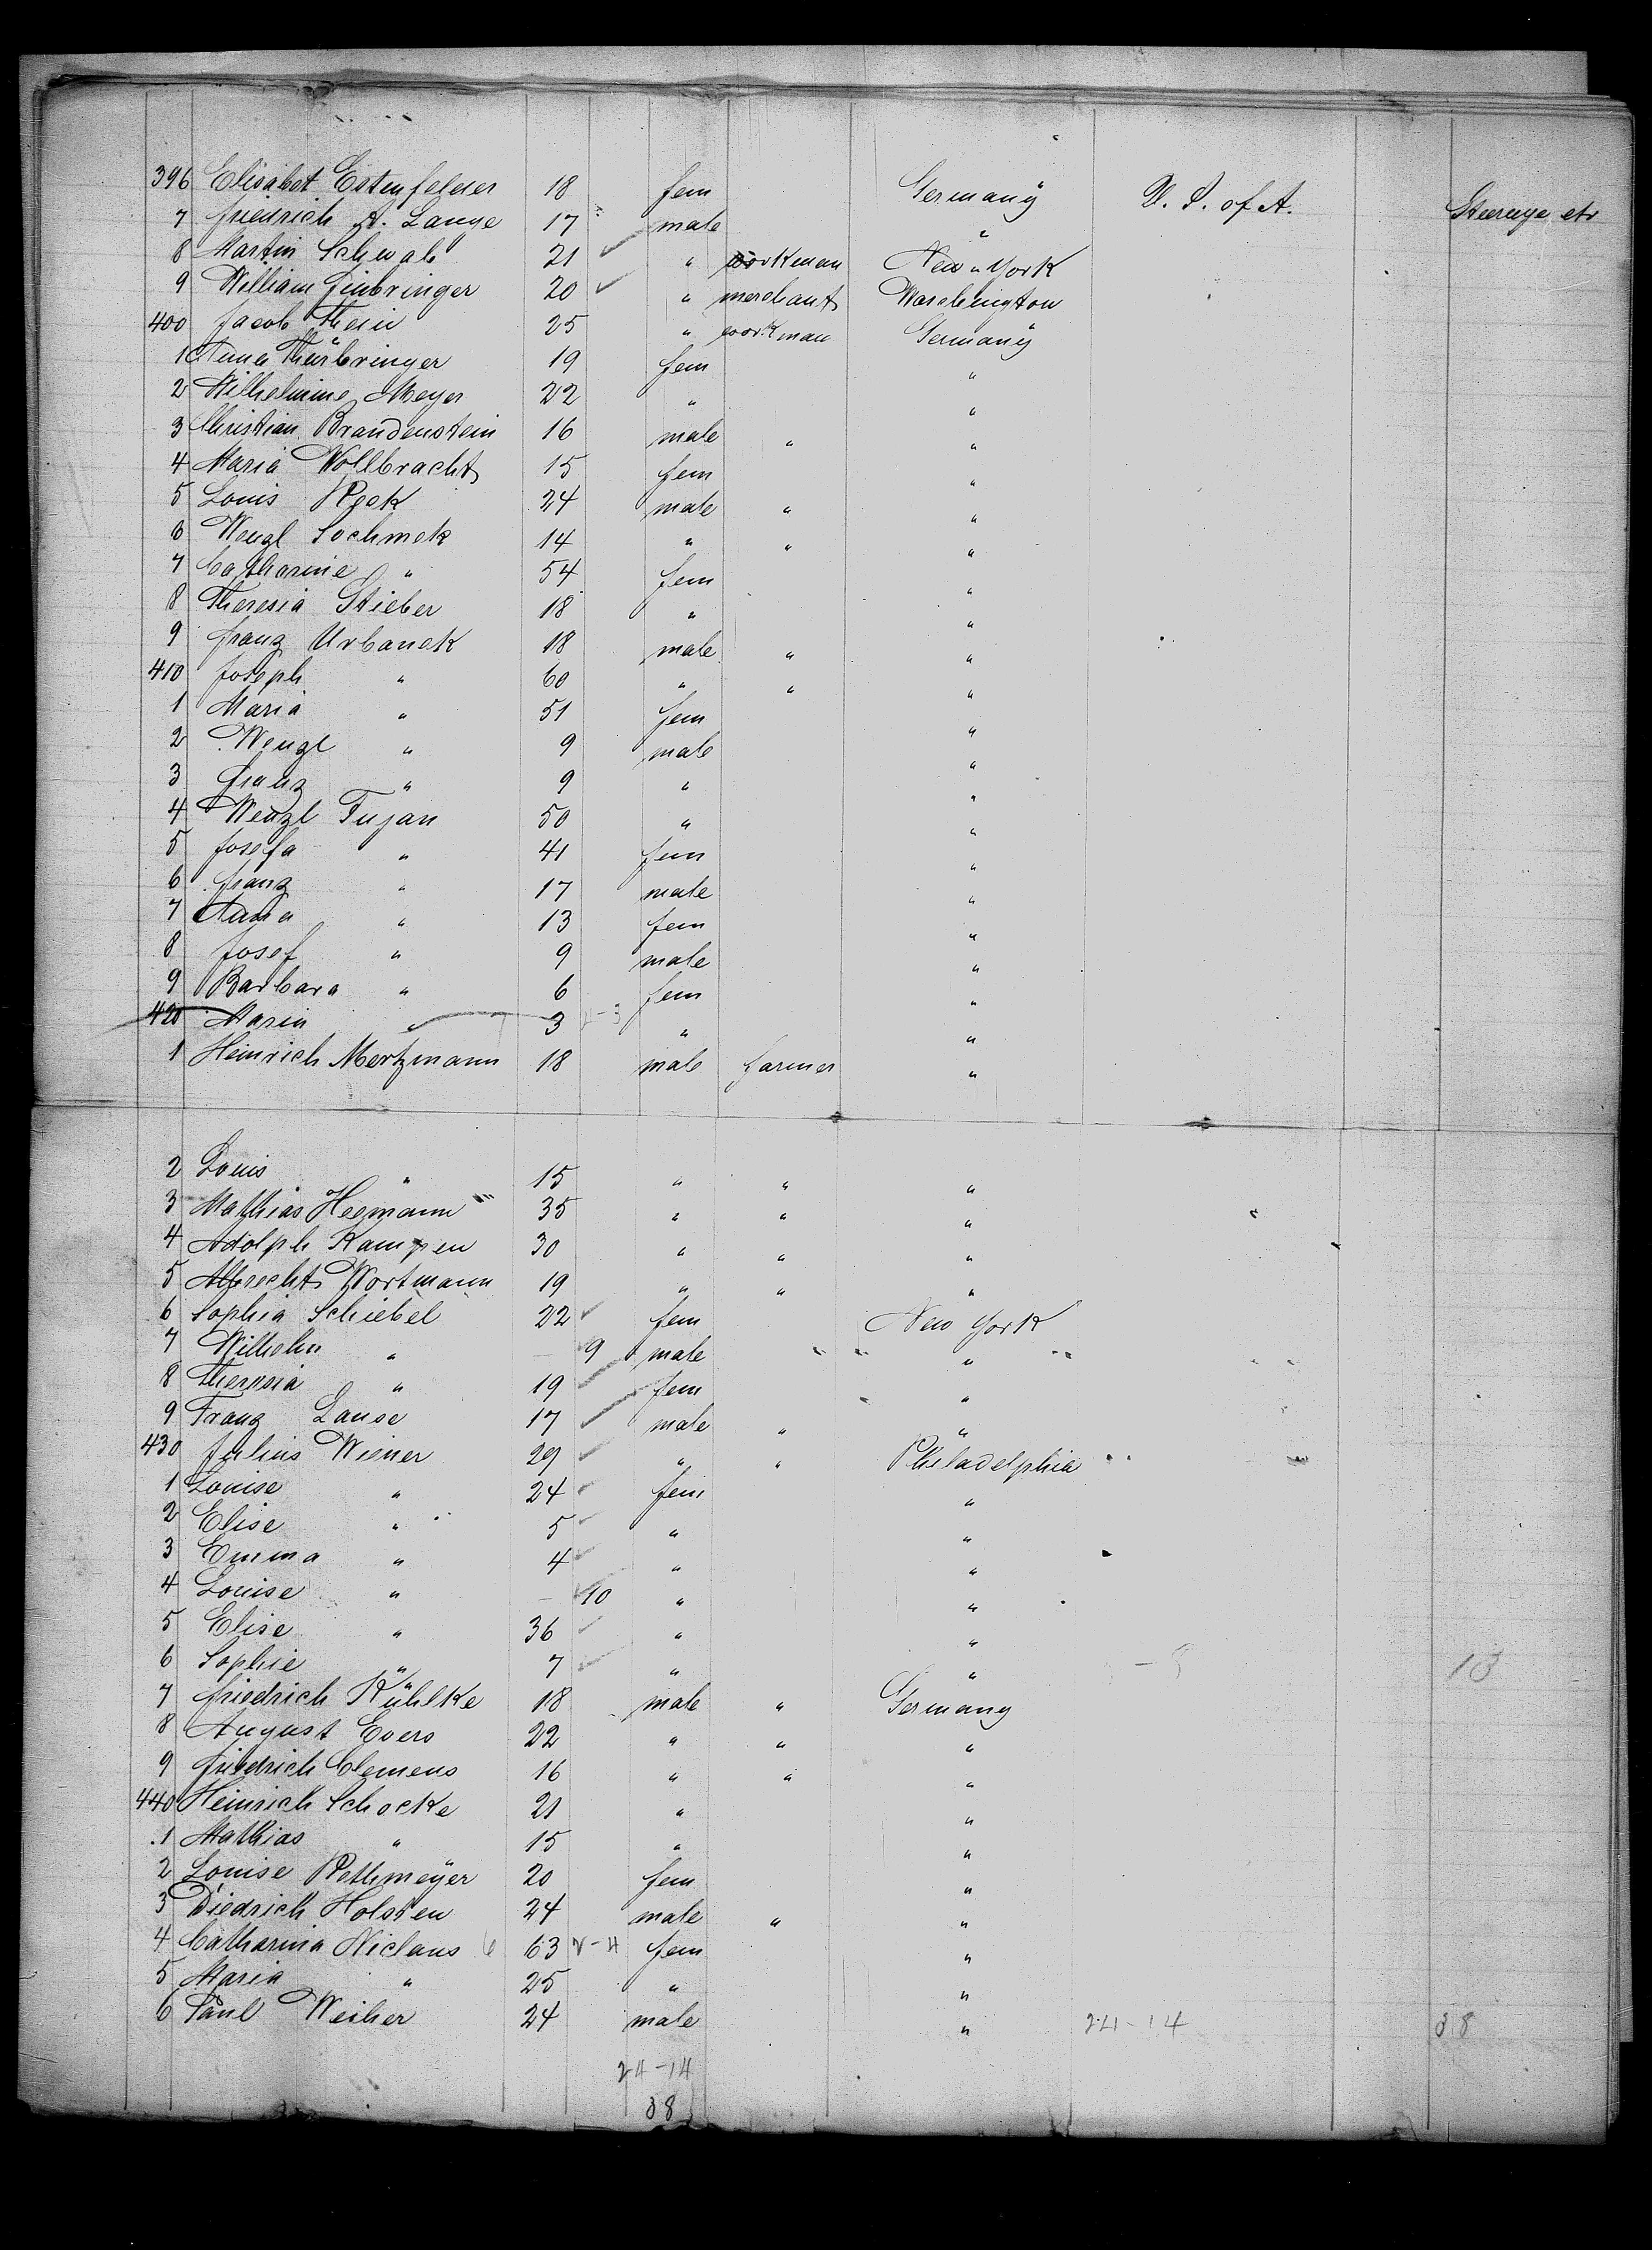 396 Elisabet Estenfelder 18 fem Germany U. S. of A. Steerage etc
7 Friedrich A. Lange 17 male "
8 Martin Schwab 21 " workman New York
9 William Finbringer 20 " merchant Waschington
400 Jacob Thein 25 " workman Germany
1 Anna Thürbringer 19 fem "
2 Wilhelmine Meyer 22 " "
3 Christian Brandenstein 16 male " "
4 Maria Vollbracht 15 fem "
5 Louis Peek 24 male " "
6 Wenzl Sochmek 14 " " "
7 Catharine " 54 fem "
8 Theresia Stieber 18 " "
9 Franz Urbanek 18 male " "
410 Joseph " 60 " " "
1 Maria " 51 fem "
2 Wenzl " 9 male "
3 Franz " 9 " "
4 Wenzl Fujan 50 " "
5 Josefa " 41 fem "
6 Franz " 17 male "
7 Anna " 13 fem "
8 Josef " 9 male "
9 Barbara " 6 fem "
420 Maria " 3 " "
1 Heinrich Mertzmann 18 male farmer "
2 Louis " 15 " " "
3 Mathias Heemann 35 " " "
4 Adolph Kampen 30 " " "
5 Albrecht Wortmann 19 " " "
6 Sophia Schiebel 22 fem New York
7 Wilhelm " — 9 male "
8 Theresia " 19 fem "
9 Franz Lause 17 male " "
430 Julius Wiener 29 " " Philadelphia
1 Louise " 24 fem "
2 Elise " 5 " "
3 Emma " 4 " "
4 Louise " — 10 " "
5 Elise " 36 " "
6 Sophie " 7 " " 13
7 Friedrich Kühlke 18 male " Germany
8 August Evers 22 " " "
9 Friedrich Clemens 16 " " "
440 Heinrich Schocke 21 " "
1 Mathias " 15 " "
2 Louise Rothmeyer 20 fem "
3 Diedrich Holsten 24 male " "
4 Catharina Niclaus 63 fem "
5 Maria " 25 " "
6 Paul Weiher 24 male " 24-14 38
24-14
38